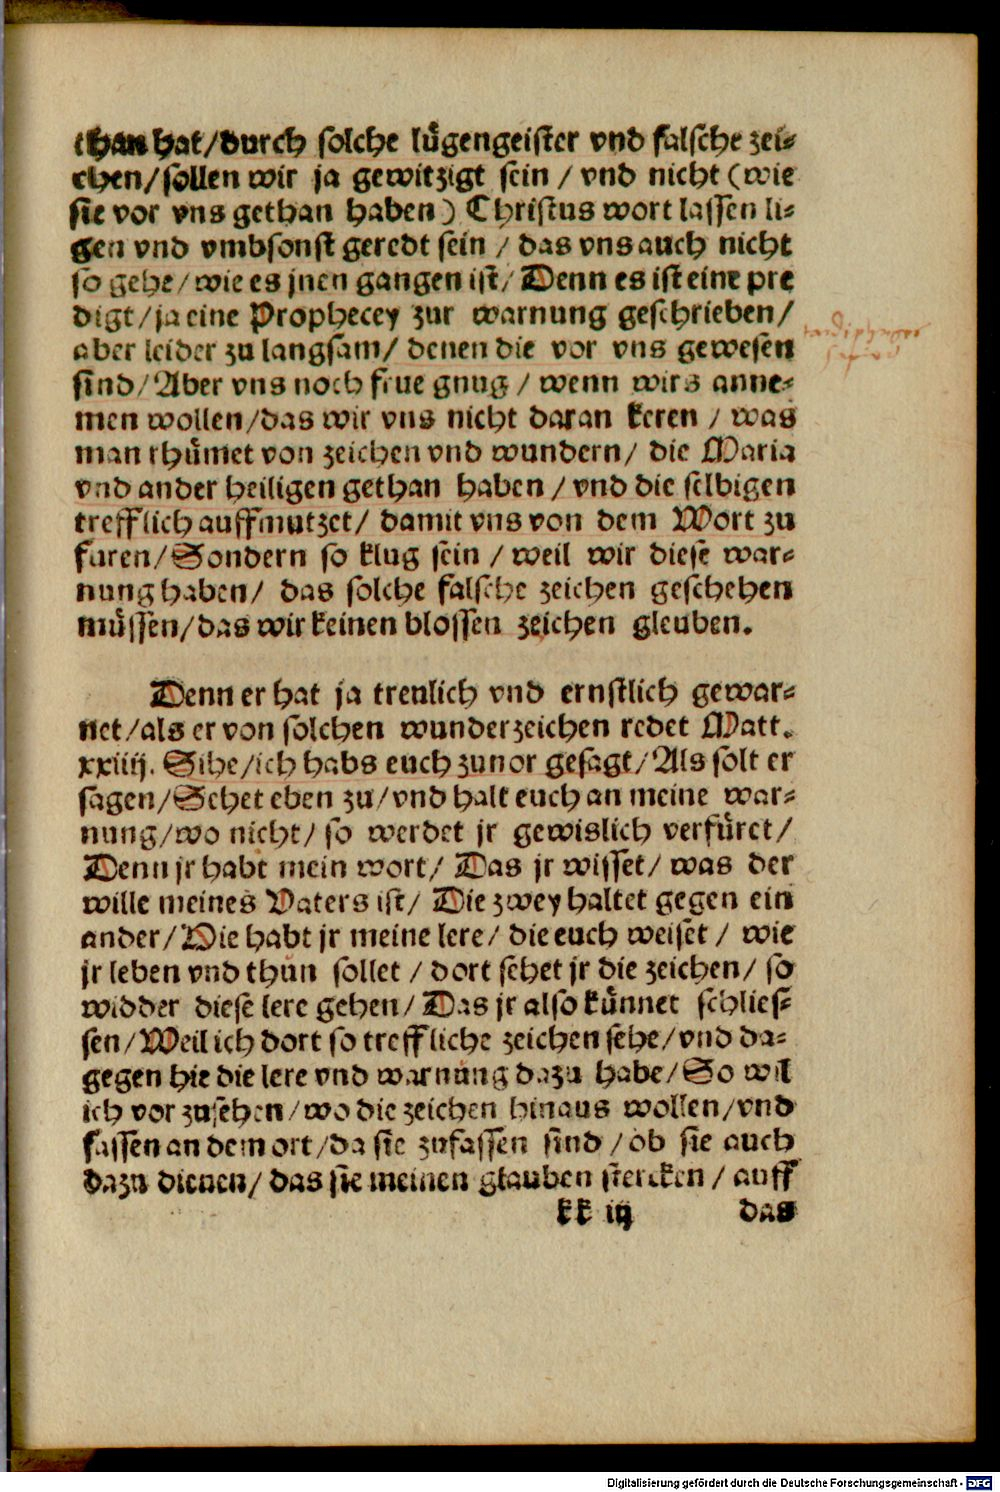 than hat/durch solche lügengeister vnd falsche zei-
chen/sollen wir ja gewitzigt sein / vnd nicht (wie
sie vor vns gethan haben) Christus wort lassen li-
gen vnd vmbsonst geredt sein / das vns auch nicht
so gehe/wie es jnen gangen ist/ Denn es ist eine pre
digt/ja eine Prophecey zur warnung geschrieben/
aber leider zu langsam/ denen die vor vns gewesen
sind/Aber vns noch frue gnug / wenn wirs anne-
men wollen/das wir vns nicht daran keren / was
man rhümet von zeichen vnd wundern/ die Maria
vnd ander heiligen gethan haben / vnd die selbigen
trefflich auffmutzet/ damit vns von dem Wort zu
füren/Sondern so klug sein / weil wir diese war-
nung haben/ das solche falsche zeichen geschehen
müssen/das wir keinen blossen zeichen gleuben.
Denn er hat ja trenlich vnd ernstlich gewar-
net/als er von solchen wunderzeichen redet Matt.
xxiiij. Sihe/ich habs euch zunor gesagt/Als solt er
sagen/Sehet eben zu/vnd halt euch an meine war-
nung/wo nicht/ so werdet jr gewislich verfüret/
Denn jr habt mein wort/ Das jr wisset/ was der
wille meines Vaters ist/ Die zwey haltet gegen ein
ander/Hie habt jr meine lere/ die euch weiset / wie
jr leben vnd thun sollet / dort sehet jr die zeichen/ so
widder diese lere gehen/ Das jr also künnet schlies-
sen/Weil ich dort so treffliche zeichen sehe/vnd da-
gegen hie die lere vnd warnung dazu habe/So wil
ich vor zusehen/wo die zeichen hinaus wollen/vnd
fassen an dem ort/da sie zufassen sind / ob sie auch
dazu dienen/ das sie meinen glauben stercken / auff
kk iij das
Digitalisierung gefördert durch die Deutsche Forschungsgemeinschaft - DFG